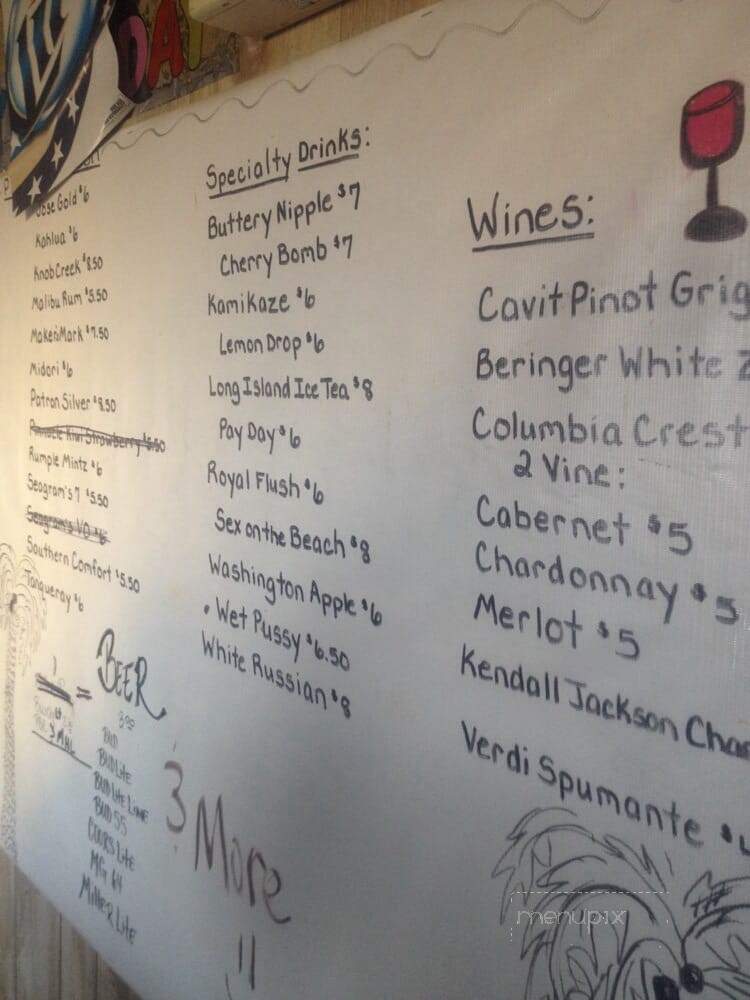 DAY
ose Gold $6
Kahlua $6
Knob Creek $8.50
Malibu Rum $5.50
Makers Mark $7.50
Midori $6
Patron Silver $8.50
Pinnacle Kiwi Strawberry $5.50
Rumple Mintz $6
Seagram's 7 $5.50
Seagram's VO $6
Southern Comfort $5.50
Tanqueray $6
Specialty Drinks:
Buttery Nipple $7
Cherry Bomb $7
Kamikaze $6
Lemon Drop $6
Long Island Ice Tea $8
Pay Day $6
Royal Flush $6
Sex on the Beach $8
Washington Apple $6
• Wet Pussy $6.50
White Russian $8
Wines:
Cavit Pinot Grig
Beringer White Z
Columbia Crest
2 Vine:
Cabernet $5
Chardonnay $5
Merlot $5
Kendall Jackson Char
Verdi Spumante $
=
BEER
BUD
BUD Lite
BUD Lite Lime
BUD 55
COORS Lite
MG 64
Miller Lite
3 More
menupix